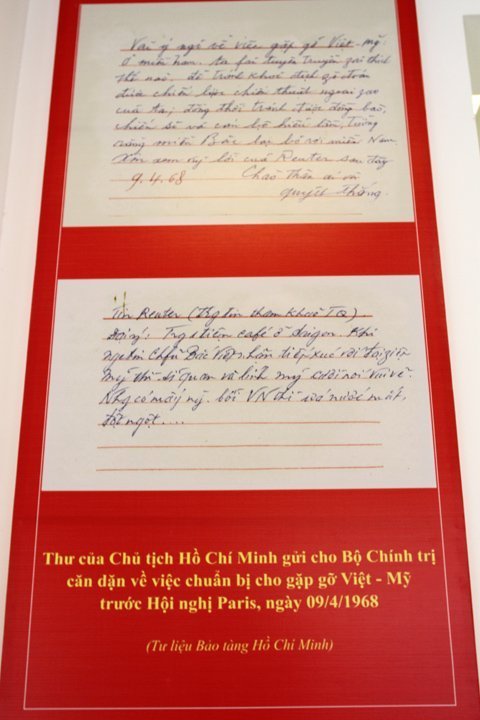 Vài ý ngĩ về việc gặp gỡ Việt-Mỹ.
Ở miền Nam, ta fải tuyên truyền giải thích
thế nào, để tránh khỏi địch
chiến lược, chiến thuật ngoại zao
của ta; đồng thời tránh được đồng bào,
chiến sĩ và cán bộ hiểu lầm, tưởng
rằng miền Bắc bỏ rơi miền Nam.
Xin xem mấy lời của Reuter sau đây
9.4.68 Chào thân ái và
quyết thắng.
Tin Reuter (Thg tin tham khảo TQ).
Đại ý: Trg 1 tiệm café ở Saigon. Khi
nge tin Chfủ Bắc Việt tiếp xúc với đại ziện
Mỹ thì sĩ quan và lính Mỹ cười nói vui vẻ.
Nhg có mấy ng. bồi VN thì nước mắt,
đột ngột....
Thư của Chủ tịch Hồ Chí Minh gửi cho Bộ Chính trị
căn dặn về việc chuẩn bị cho gặp gỡ Việt - Mỹ
trước Hội nghị Paris, ngày 09/4/1968
(Tư liệu Bảo tàng Hồ Chí Minh)